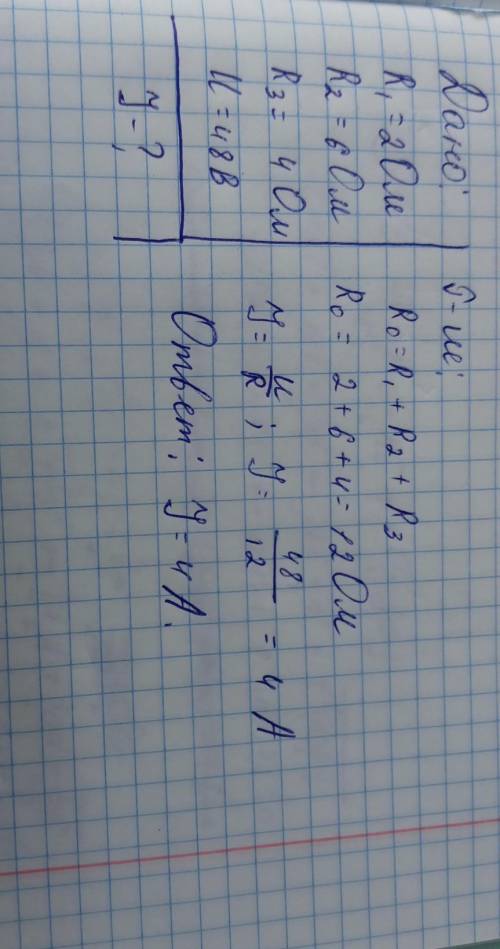 Дано:
R₁ = 2 Ом
R₂ = 6 Ом
R₃ = 4 Ом
U = 48 В
У - ?
Р-ие:
R₀ = R₁ + R₂ + R₃
R₀ = 2 + 6 + 4 = 12 Ом
У = U/R ; У = 48/12 = 4 А
Ответ: У = 4 А.